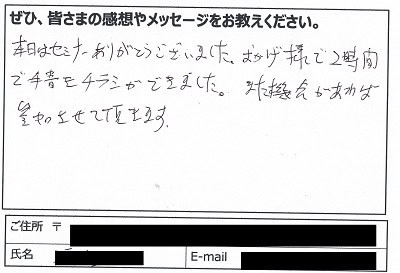 ぜひ、皆さまの感想やメッセージをお教えください。
本日はセミナーありがとうございました。おかげ様で2時間
でチラシができました。また機会があれば
参加させて頂きます。
ご住所 〒
氏名 E-mail